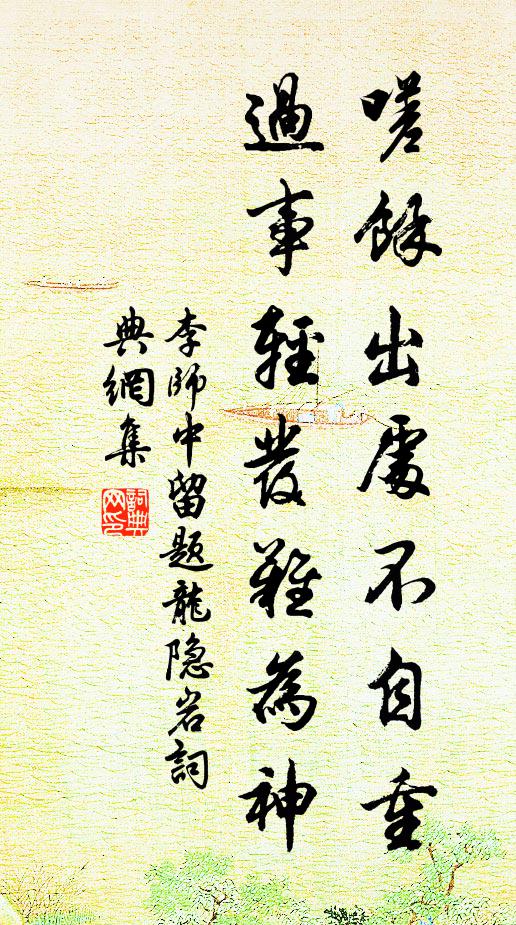 嗟餘出處不自重
過事輕發難為神
李師中留題龍隐岩詞
典網集
詞典網印